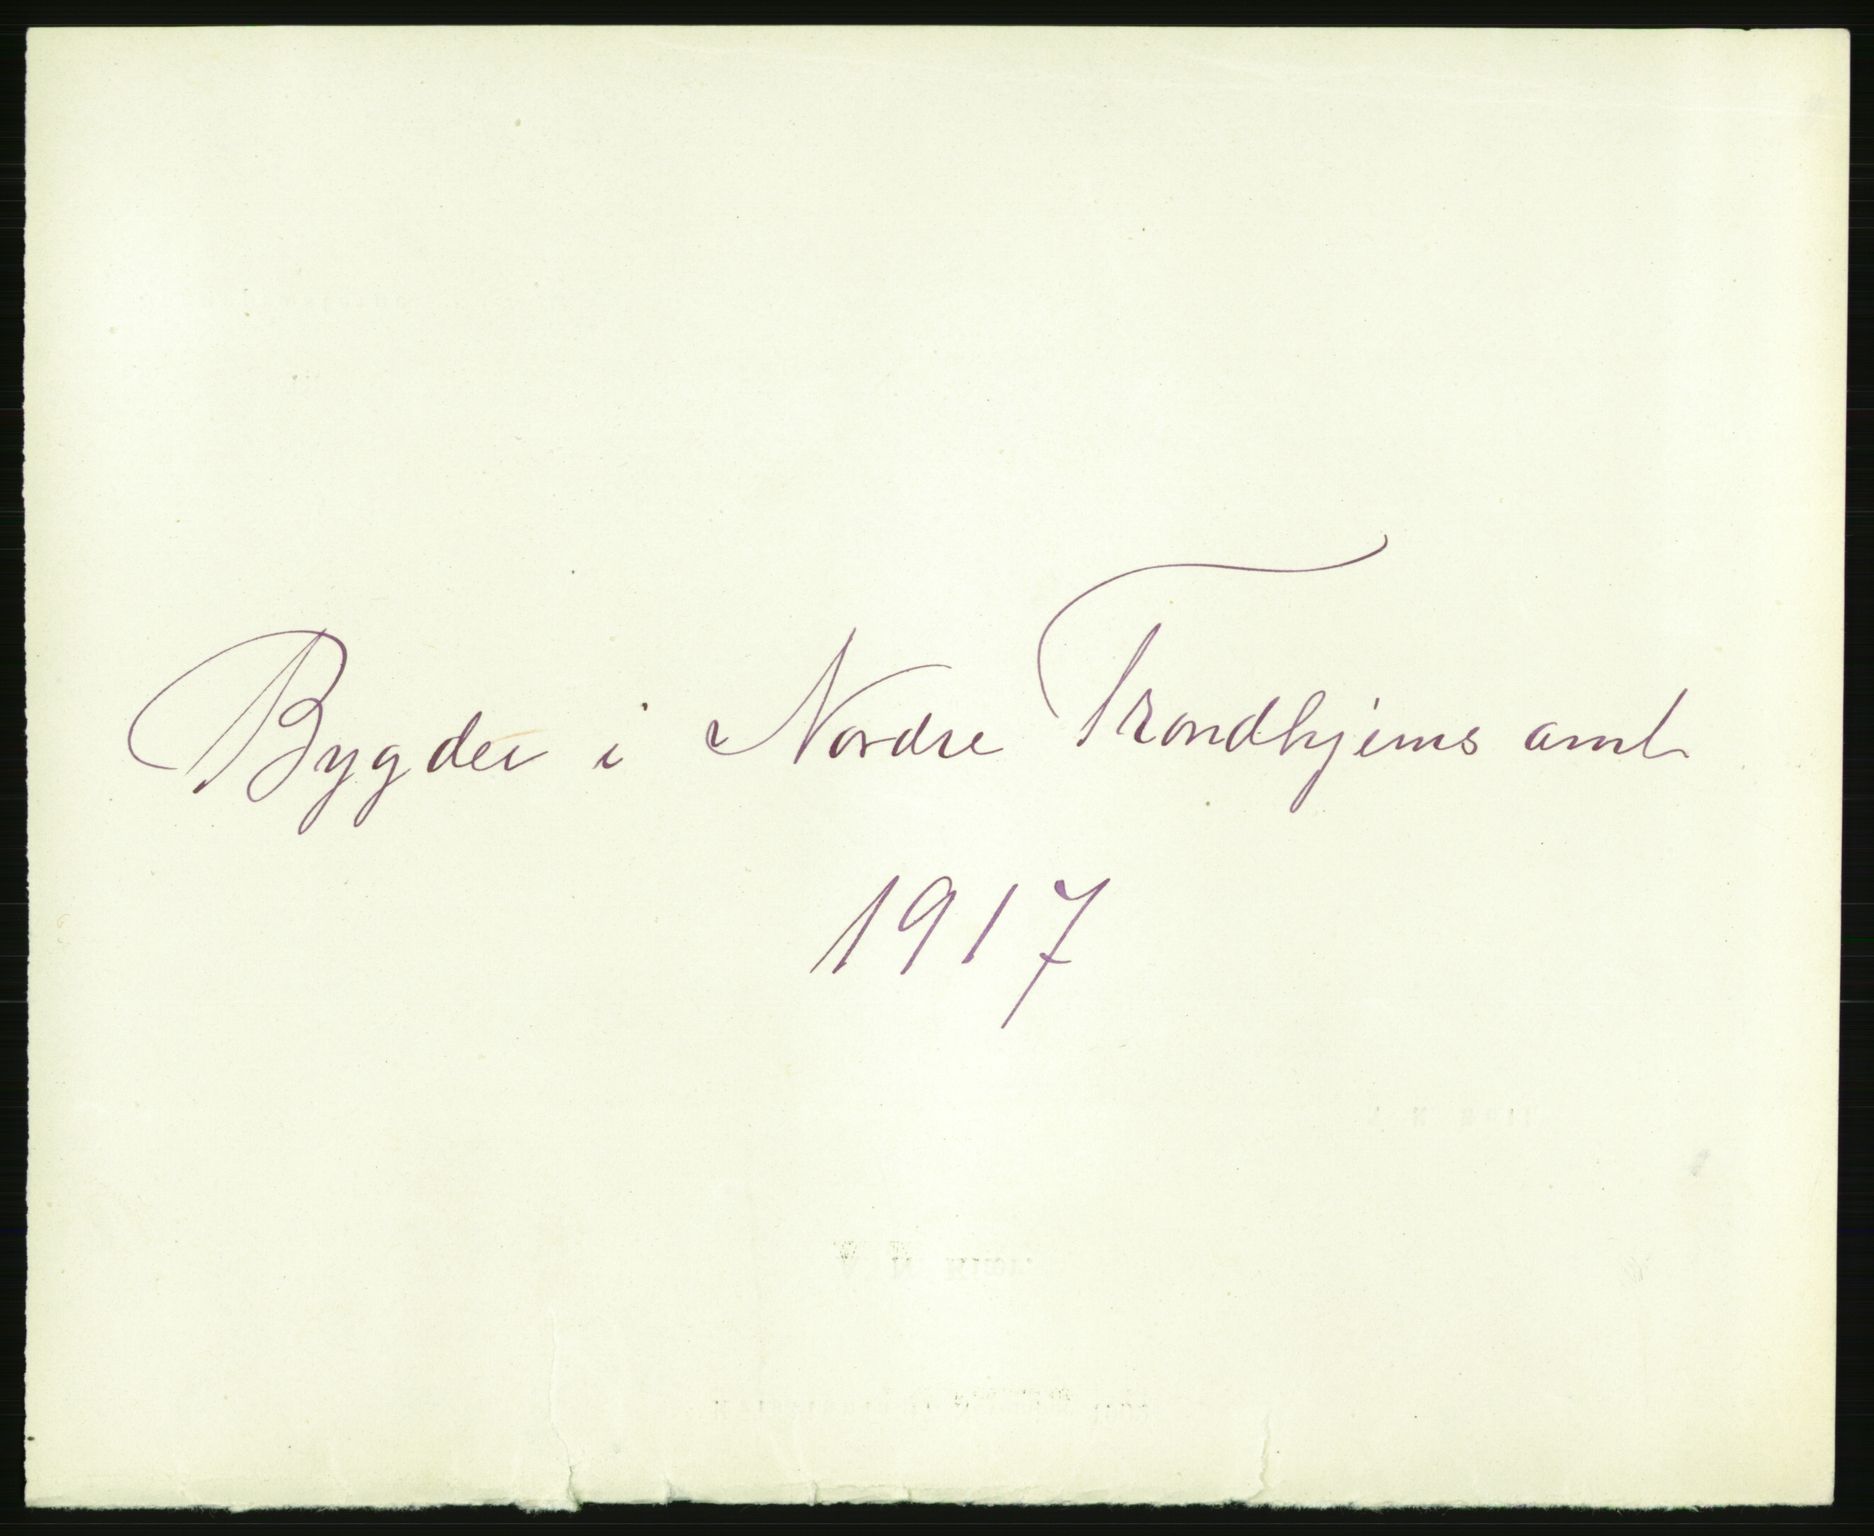 Bygder i Nordre Trondhjems amt
1917